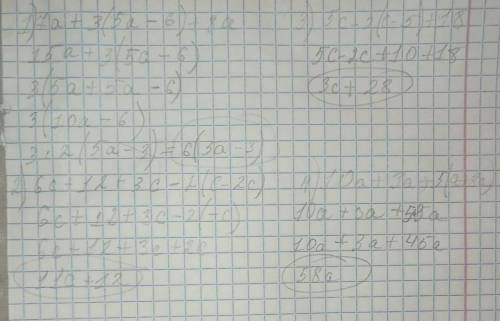 1) 7a + 3(5a - 6) + 8a
15a + 3(5a - 6)
3(5a + 5a - 6)
3(10a - 6)
3 · 2(5a - 3) = 6(5a - 3)
2) 6c + 12 + 3c - 2(c - 2c)
6c + 12 + 3c - 2(-c)
6c + 12 + 3c + 2c
11c + 12
3) 5c - 2(c - 5) + 18
5c - 2c + 10 + 18
3c + 28
4) 10a + 3a + 5(
10a + 3a + 5
10a + 3a + 45a
58a